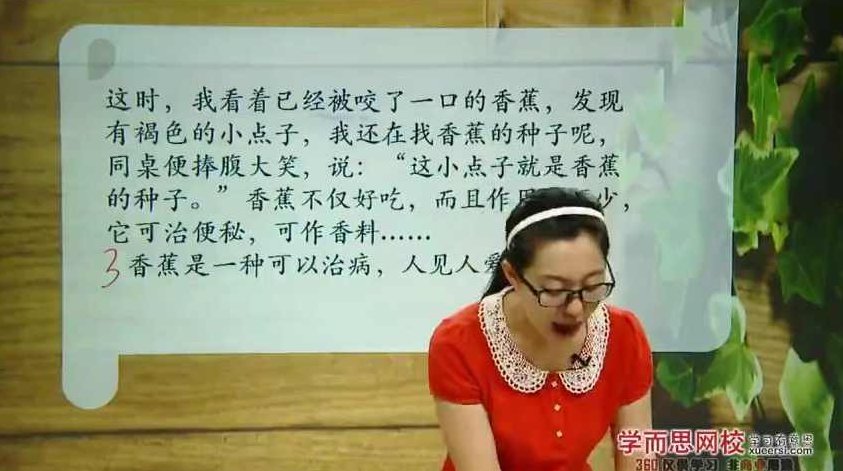 这时，我看着已经被咬了一口的香蕉，发现
有褐色的小点子，我还在找香蕉的种子呢，
同桌便捧腹大笑，说：“这小点子就是香蕉
的种子。”香蕉不仅好吃，而且作 少，
它可治便秘，可作香料……
3 香蕉是一种可以治病，人见人爱
学而思网校
学习有意思
xueersi.com